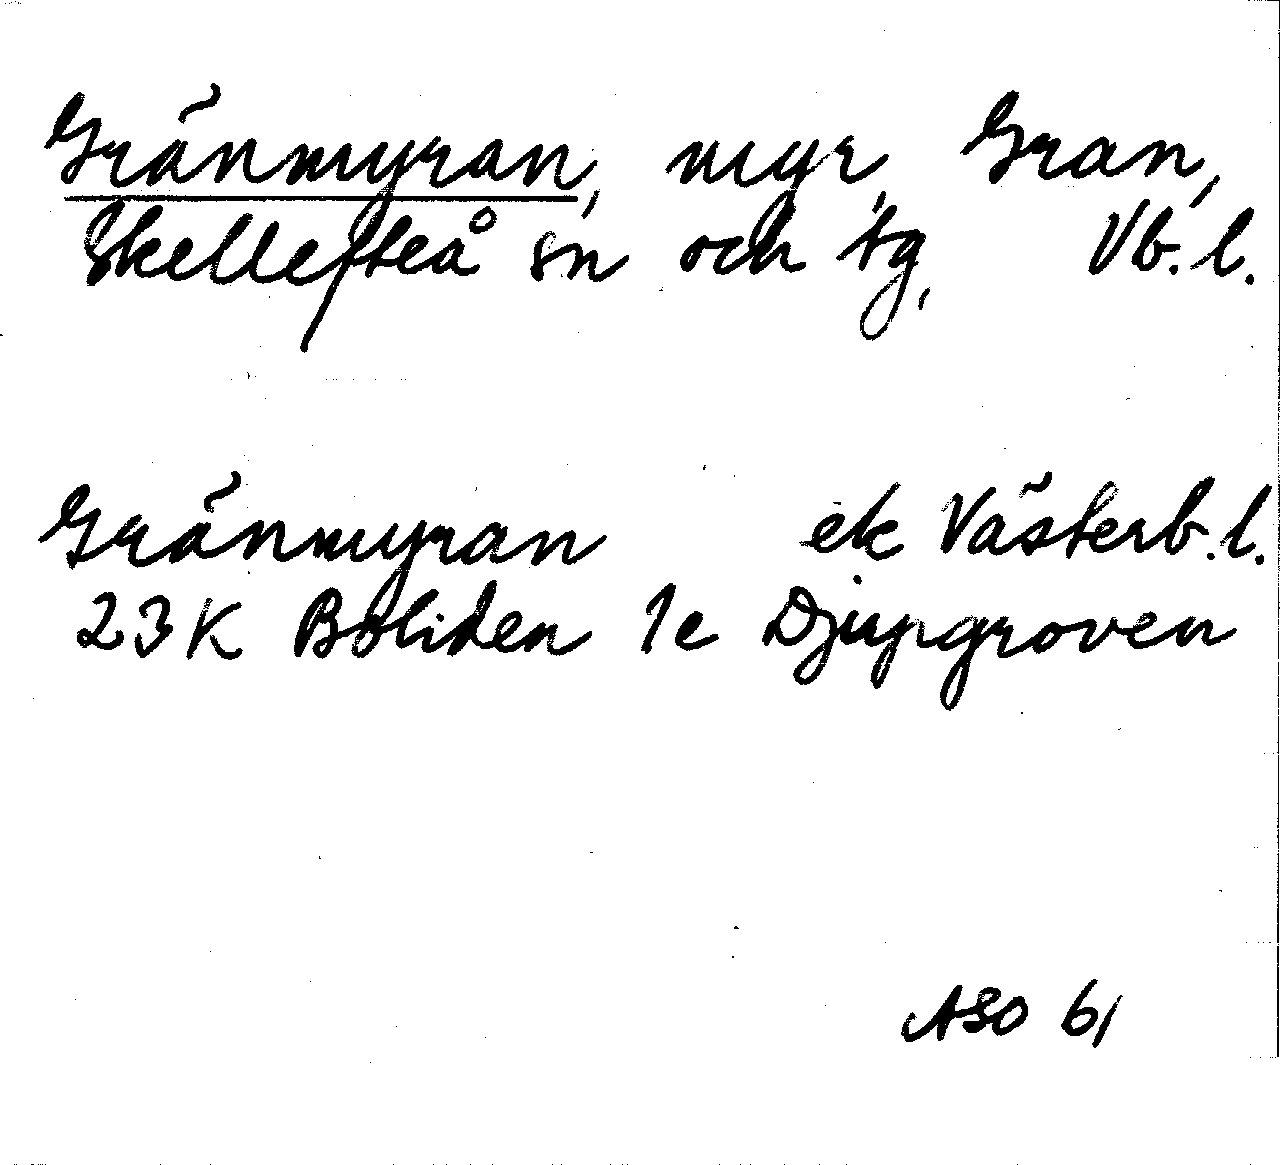 Gränmyran, myr, Gran,
Skellefteå sn och tg, Vb. l.
Gränmyran ek Västerb. l.
23K Boliden 1e Djupgroven
ASO 61